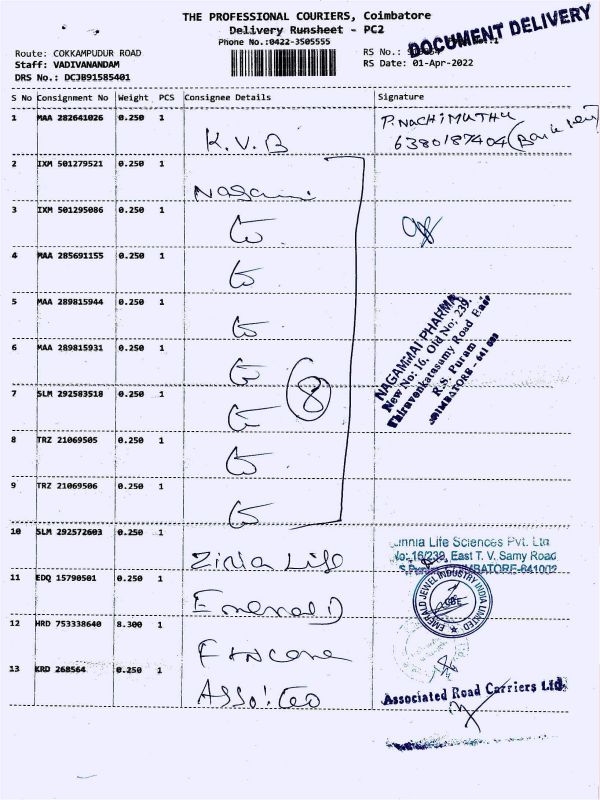 THE PROFESSIONAL COURIERS, Coimbatore
Delivery Runsheet - PC2
Phone No.:0422-3505555
DOCUMENT DELIVERY
Route: COKKAMPUDUR ROAD
RS No.:
Staff: VADIVANANDAM
RS Date: 01-Apr-2022
DRS No.: DCJB91585401
S No Consignment No Weight PCS Consignee Details Signature
1 MAA 282641026 0.250 1 K.V.B P.NACHIMUTHU
6380187404
2 IXM 501279521 0.250 1
3 IXM 501295086 0.250 1
4 MAA 285691155 0.250 1
5 MAA 289815944 0.250 1
6 MAA 289815931 0.250 1
7 SLM 292583518 0.250 1
8 TRZ 21069505 0.250 1
9 TRZ 21069506 0.250 1
8
NAGAMMAI PHARMA
New No: 16, Old No: 239,
Thiruvenkatasamy Road East
R.S. Puram
COIMBATORE - 641 002
10 SLM 292572603 0.250 1 Zinia Life
Life Sciences Pvt. Ltd
No: 16/239, East T. V. Samy Road
11 EDQ 15790501 0.250 1 Emerald
EMERALD JEWEL INDUSTRY INDIA LIMITED
12 HRD 753338640 8.300 1
13 KRD 268564 0.250 1
Associated Road Carriers Ltd.